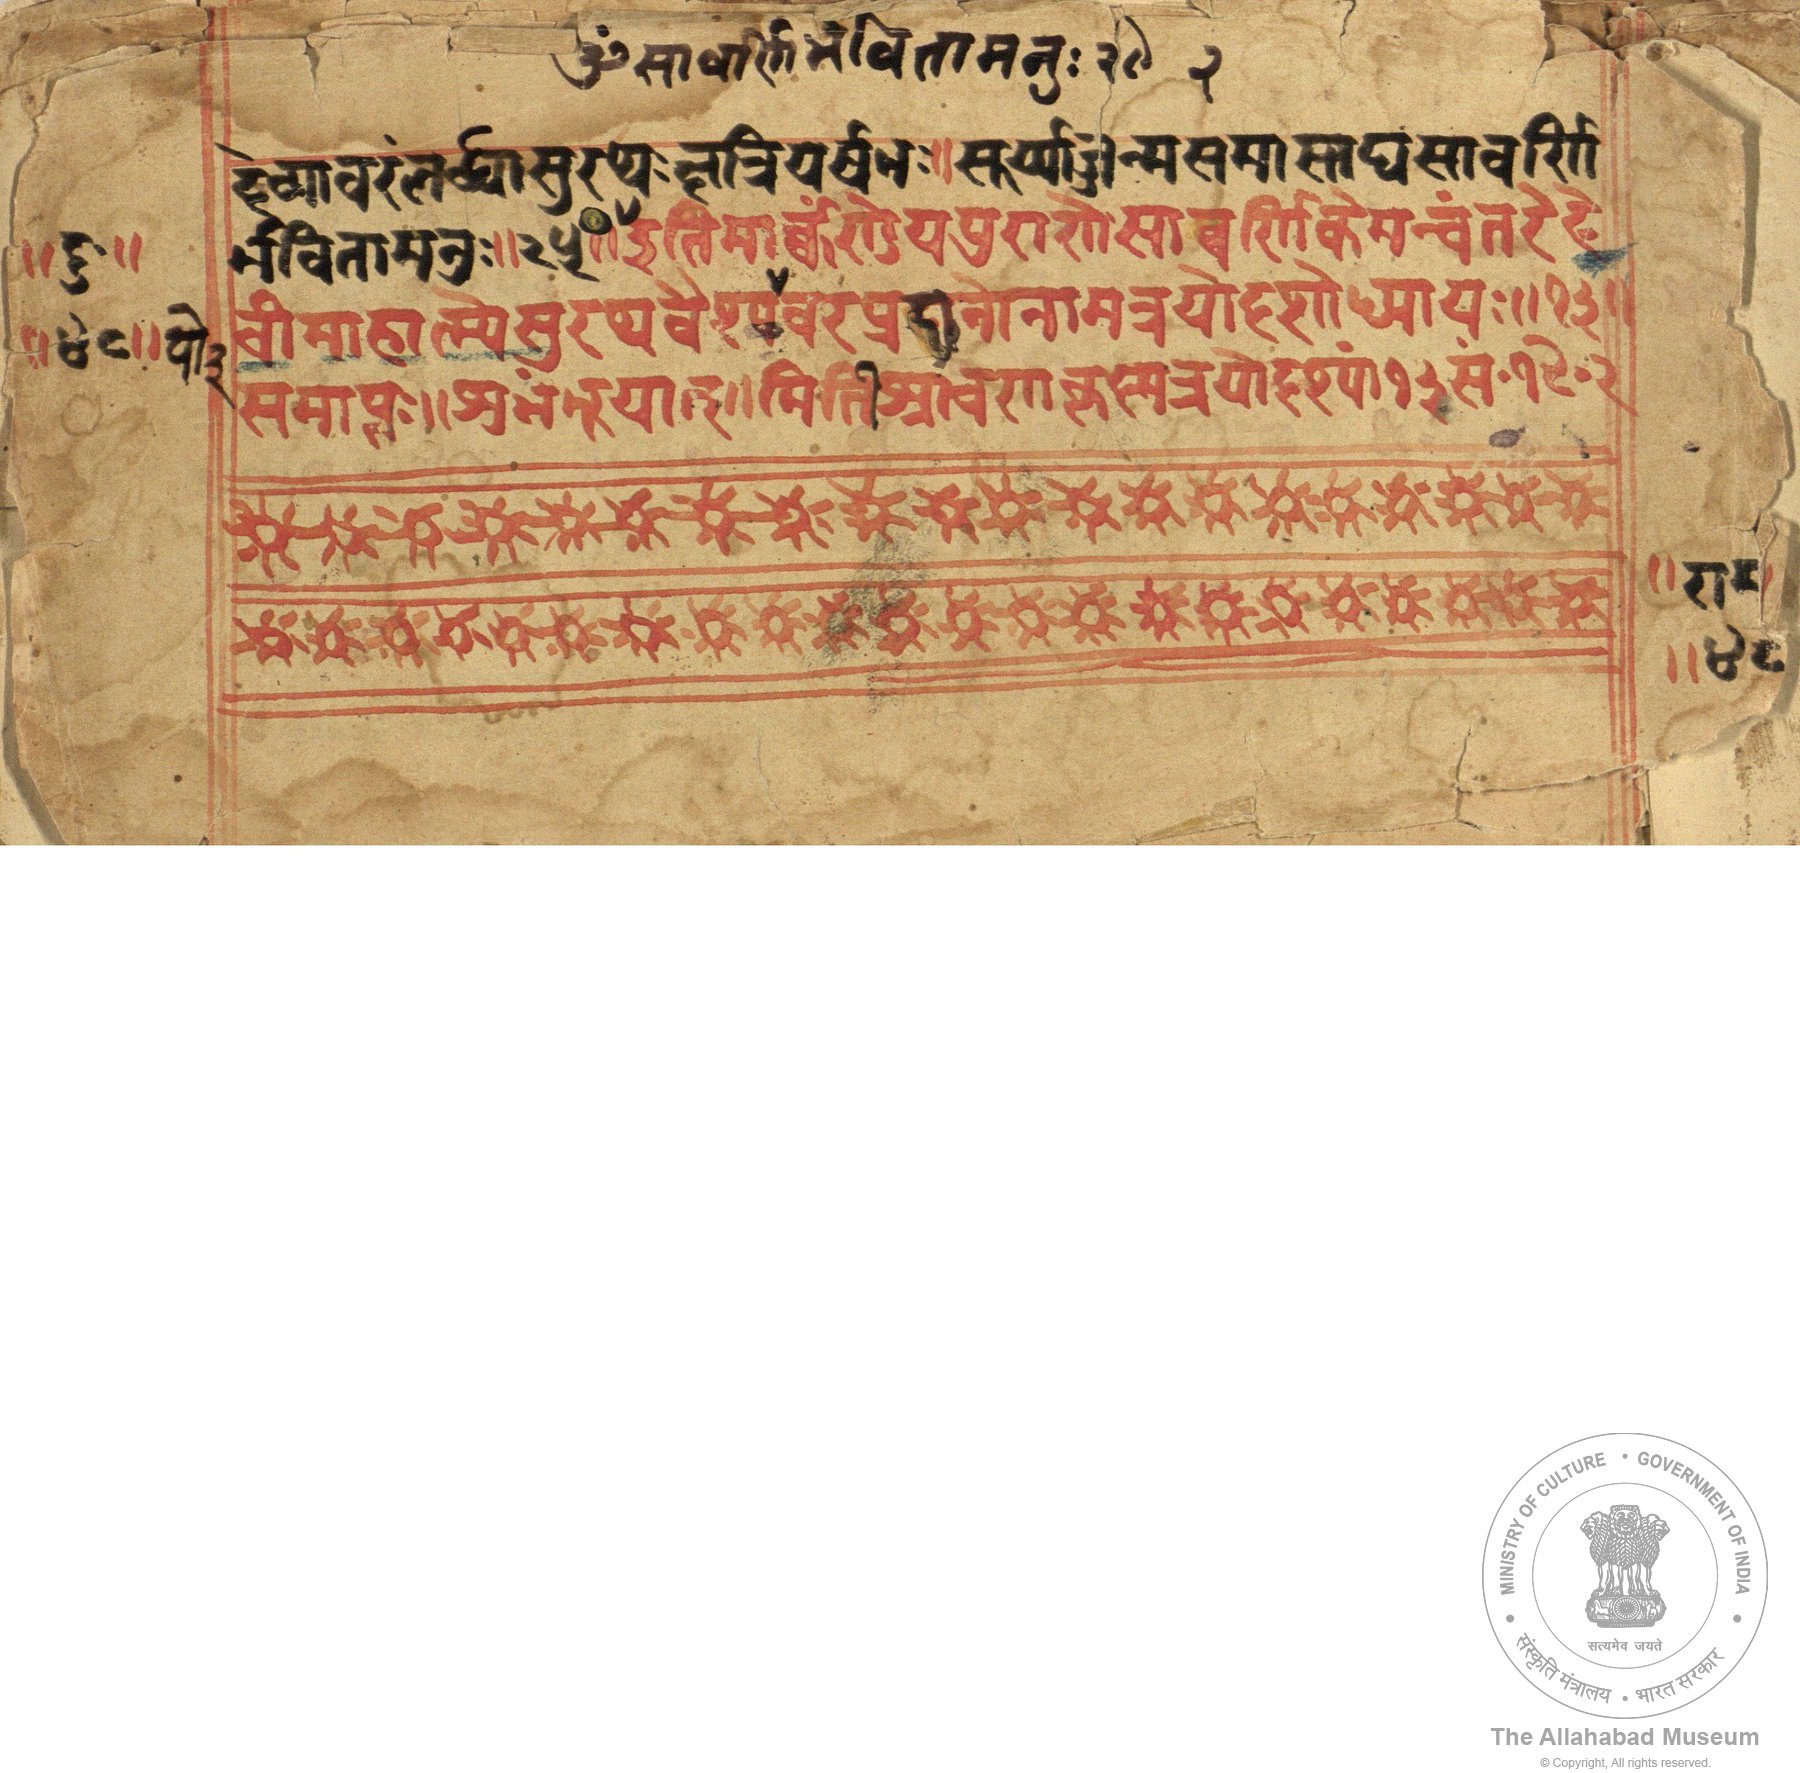 ॐ सावर्णिर्भविता मनुः २९ २
देव्या वरं लब्ध्वा सुरथः क्षत्रियर्षभः ॥ सूर्य्याज्जन्म समासाद्य सावर्णि
र्भविता मनुः ॥ २५ ॥ इति मार्कण्डेयपुराणे सावर्णिके मन्वंतरे दे
वीमाहात्म्ये सुरथवैश्ययोवरप्रदानो नाम त्रयोदशोध्यायः ॥ १३ ॥
समाप्तः ॥ शुभं भूयात् ॥ मिति श्रावण कृष्ण त्रयोदश्यां १३ सं॰ १९॰२
॥ दु ॥
॥ ४८ ॥
यो ३
॥ राम ॥
॥ ४८
MINISTRY OF CULTURE • GOVERNMENT OF INDIA
सत्यमेव जयते
संस्कृति मंत्रालय • भारत सरकार
The Allahabad Museum
© Copyright, All rights reserved.